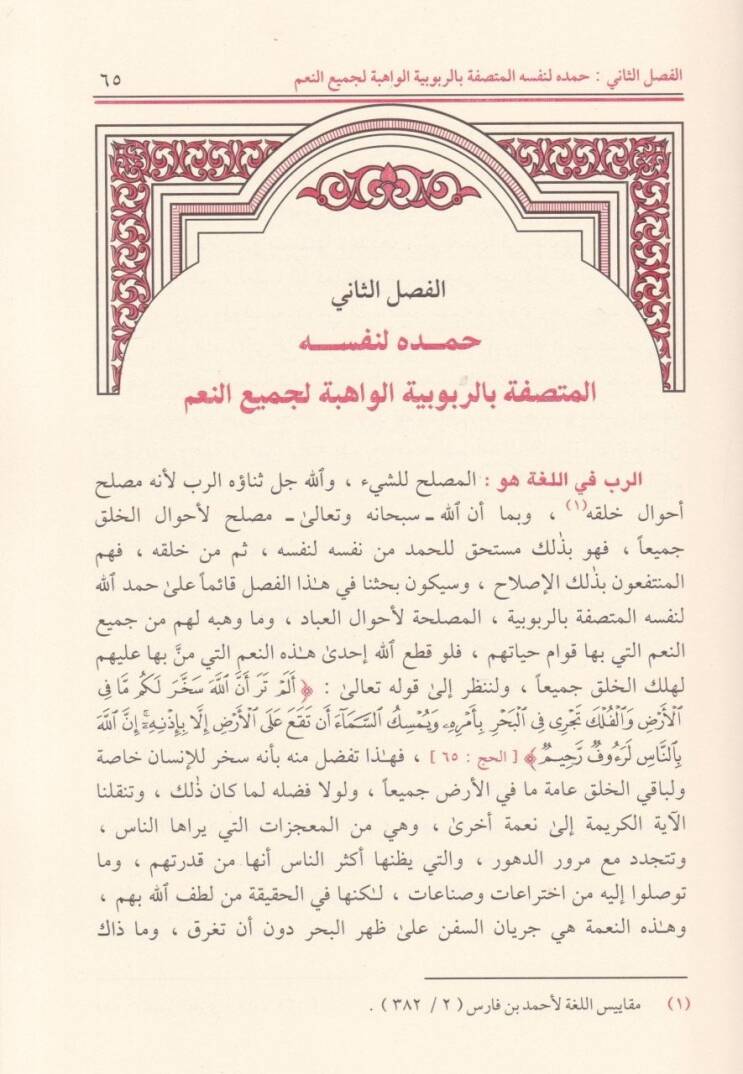 الفصل الثاني : حمده لنفسه المتصفة بالربوبية الواهبة لجميع النعم ٦٥
الفصل الثاني
حمـــده لنفســـه
المتصفة بالربوبية الواهبة لجميع النعم
الرب في اللغة هو : المصلح للشيء ، والله جل ثناؤه الرب لأنه مصلح
أحوال خلقه(١) ، وبما أن الله ـ سبحانه وتعالىٰ ـ مصلح لأحوال الخلق
جميعاً ، فهو بذٰلك مستحق للحمد من نفسه لنفسه ، ثم من خلقه ، فهم
المنتفعون بذٰلك الإصلاح ، وسيكون بحثنا في هـٰذا الفصل قائماً علىٰ حمد الله
لنفسه المتصفة بالربوبية ، المصلحة لأحوال العباد ، وما وهبه لهم من جميع
النعم التي بها قوام حياتهم ، فلو قطع الله إحدىٰ هـٰذه النعم التي منَّ بها عليهم
لهلك الخلق جميعاً ، ولننظر إلىٰ قوله تعالىٰ : ﴿ أَلَمْ تَرَ أَنَّ اللَّهَ سَخَّرَ لَكُم مَّا فِى
ٱلْأَرْضِ وَٱلْفُلْكَ تَجْرِى فِى ٱلْبَحْرِ بِأَمْرِهِۦ وَيُمْسِكُ ٱلسَّمَآءَ أَن تَقَعَ عَلَى ٱلْأَرْضِ إِلَّا بِإِذْنِهِۦٓ ۗ إِنَّ ٱللَّهَ
بِٱلنَّاسِ لَرَءُوفٌ رَّحِيمٌ ﴾ [ الحج : ٦٥ ] ، فهـٰذا تفضل منه بأنه سخر للإنسان خاصة
ولباقي الخلق عامة ما في الأرض جميعاً ، ولولا فضله لما كان ذٰلك ، وتنقلنا
الآية الكريمة إلىٰ نعمة أخرىٰ ، وهي من المعجزات التي يراها الناس ،
وتتجدد مع مرور الدهور ، والتي يظنها أكثر الناس أنها من قدرتهم ، وما
توصلوا إليه من اختراعات وصناعات ، لـٰكنها في الحقيقة من لطف الله بهم ،
وهـٰذه النعمة هي جريان السفن علىٰ ظهر البحر دون أن تغرق ، وما ذاك
(١) مقاييس اللغة لأحمد بن فارس ( ٢ / ٣٨٢ ) .